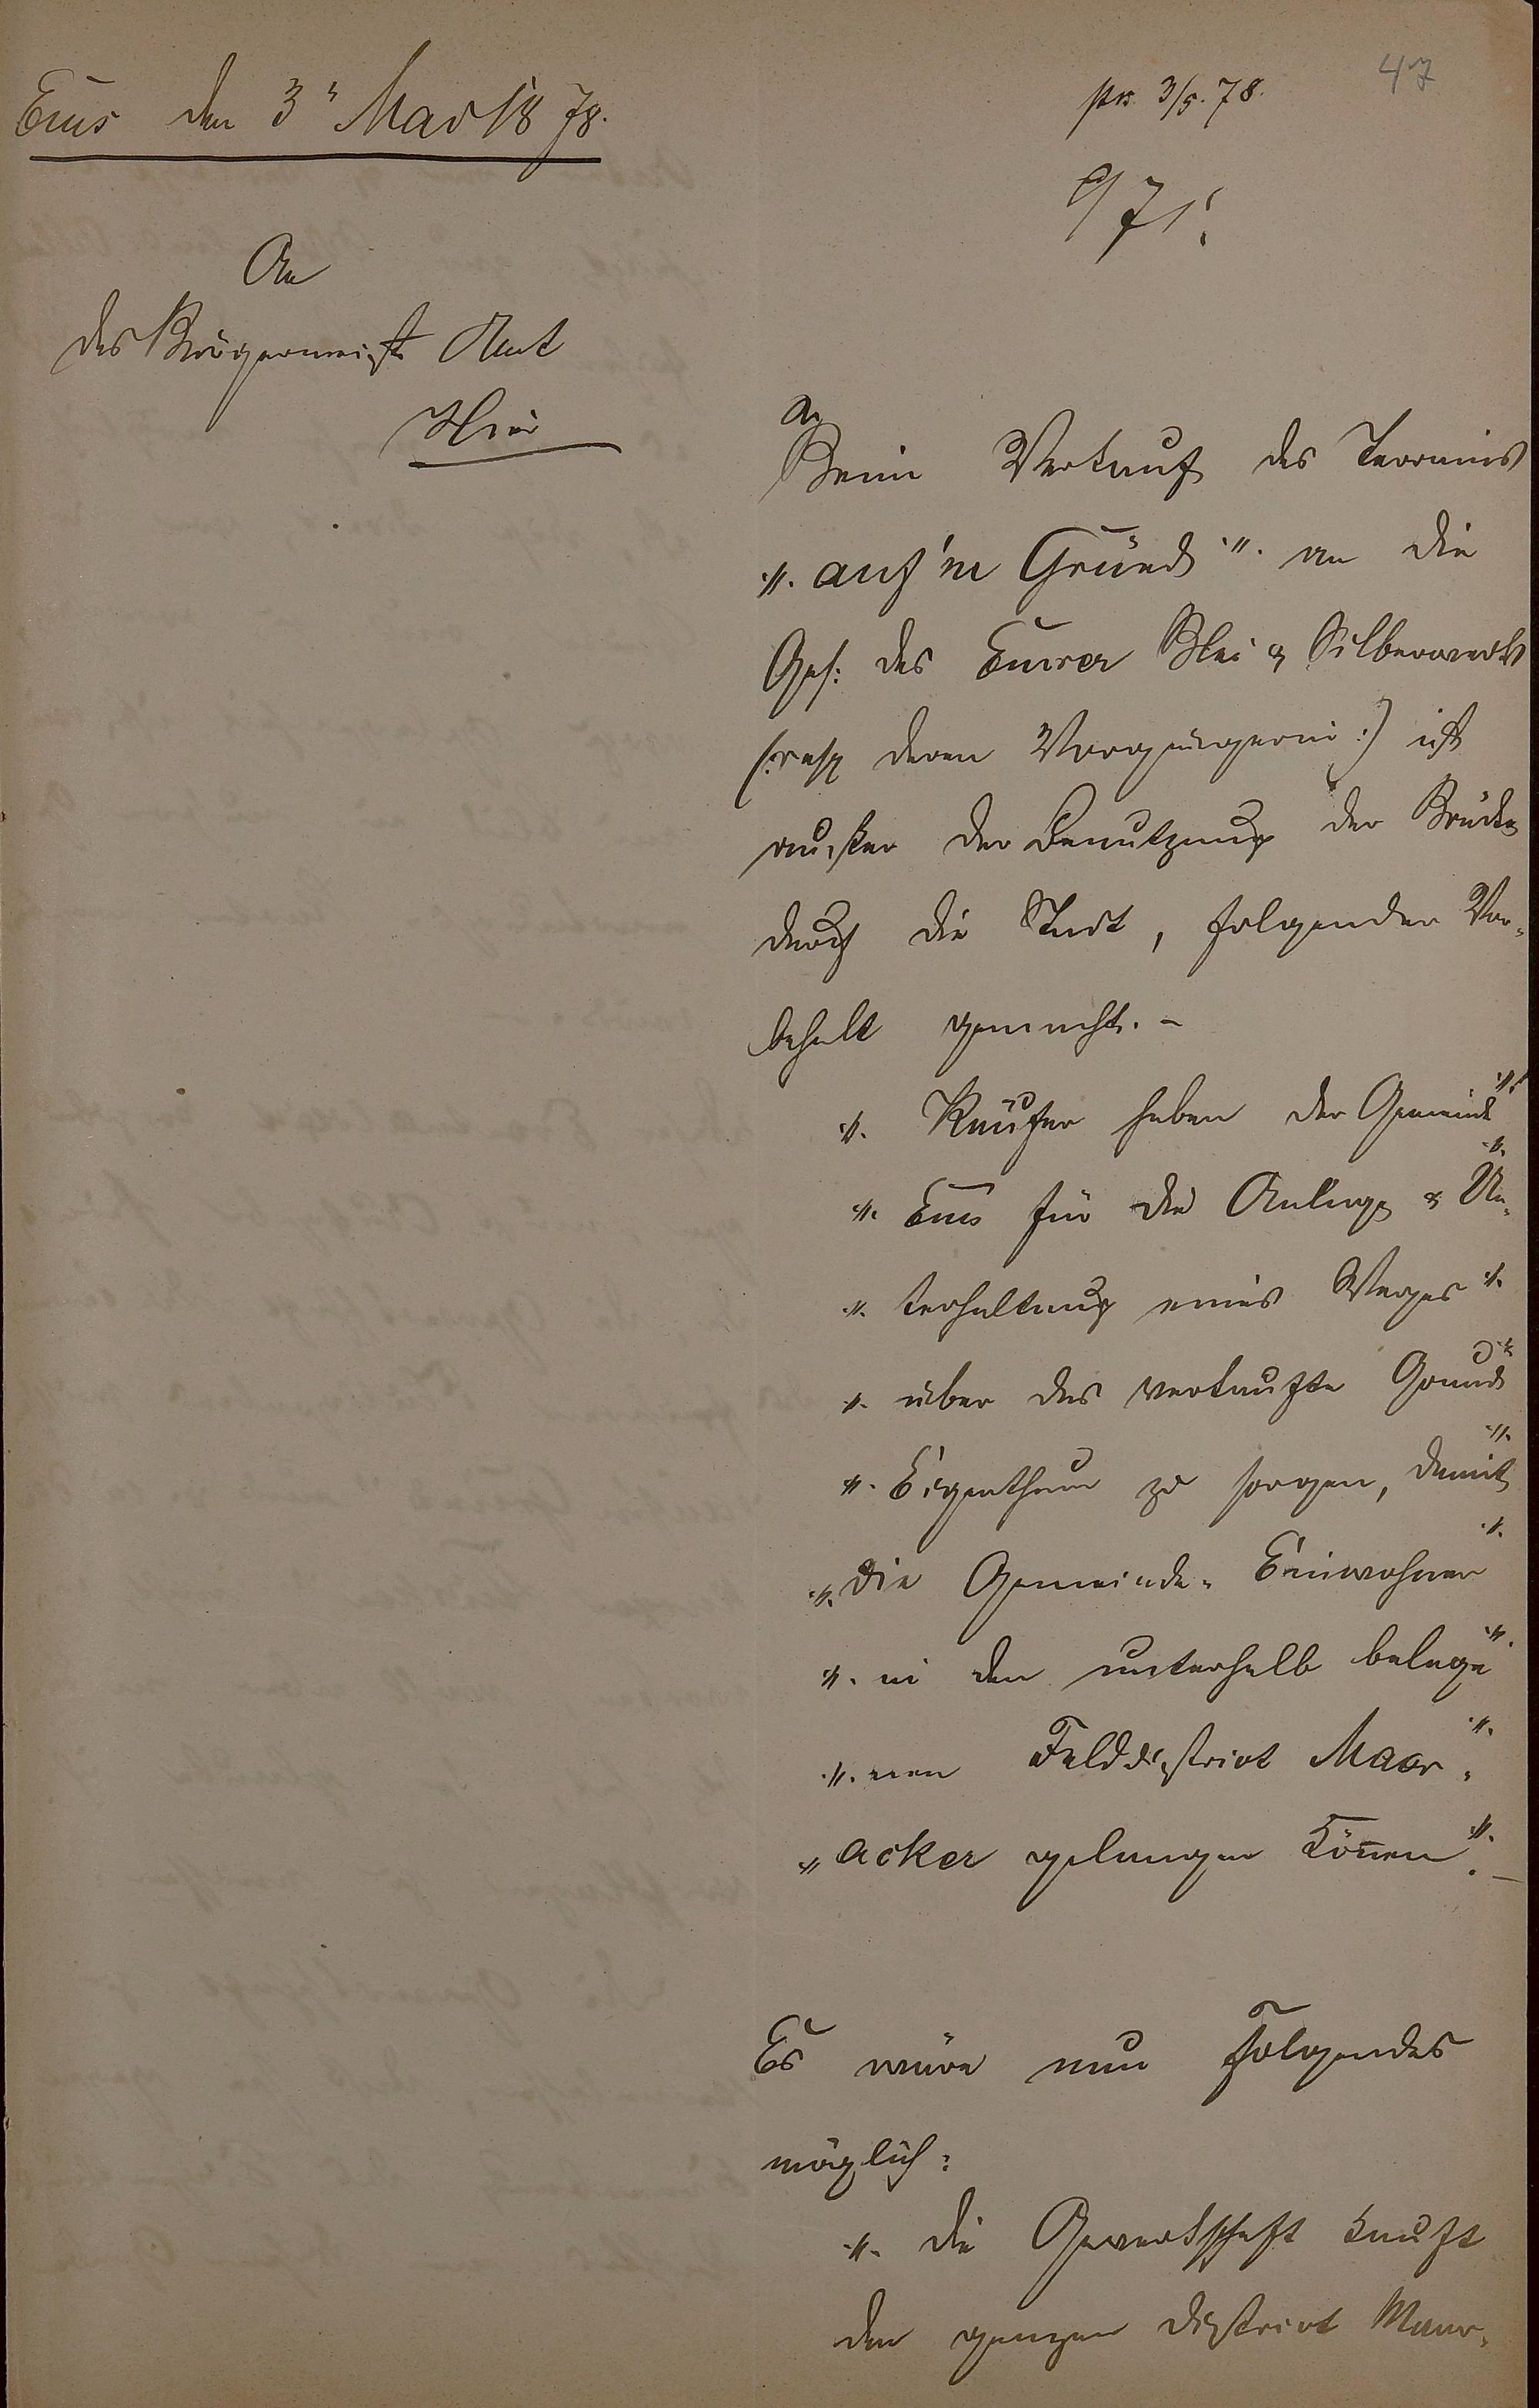 Ems den 3" Mai 1878.
prs. 3/5. 78.
47
An
das Bürgermeister Amt
Hier
Beim Verkauf des Terrains
"auf'm Gründ" an die
Ges: des Emser Blei & Silberwerks
(:resp deren Vorgängerin:) ist
außer der Benutzung der Brücke
durch die Stadt, folgender Vor-
behalt gemacht. -
" Käufer haben der Gemeinde "
" Ems für die Anlage & Un- "
" terhaltung eines Weges "
" über das verkaufte Grund "
" Eigenthum zu sorgen, damit "
" die Gemeinde-Einwohner "
" in den unterhalb belege "
" nen Felddistrict Maar- "
" acker gelangen können". -
Es wäre nun folgendes
möglich:
" die Gewerkschaft kauft
den ganzen District Maar-